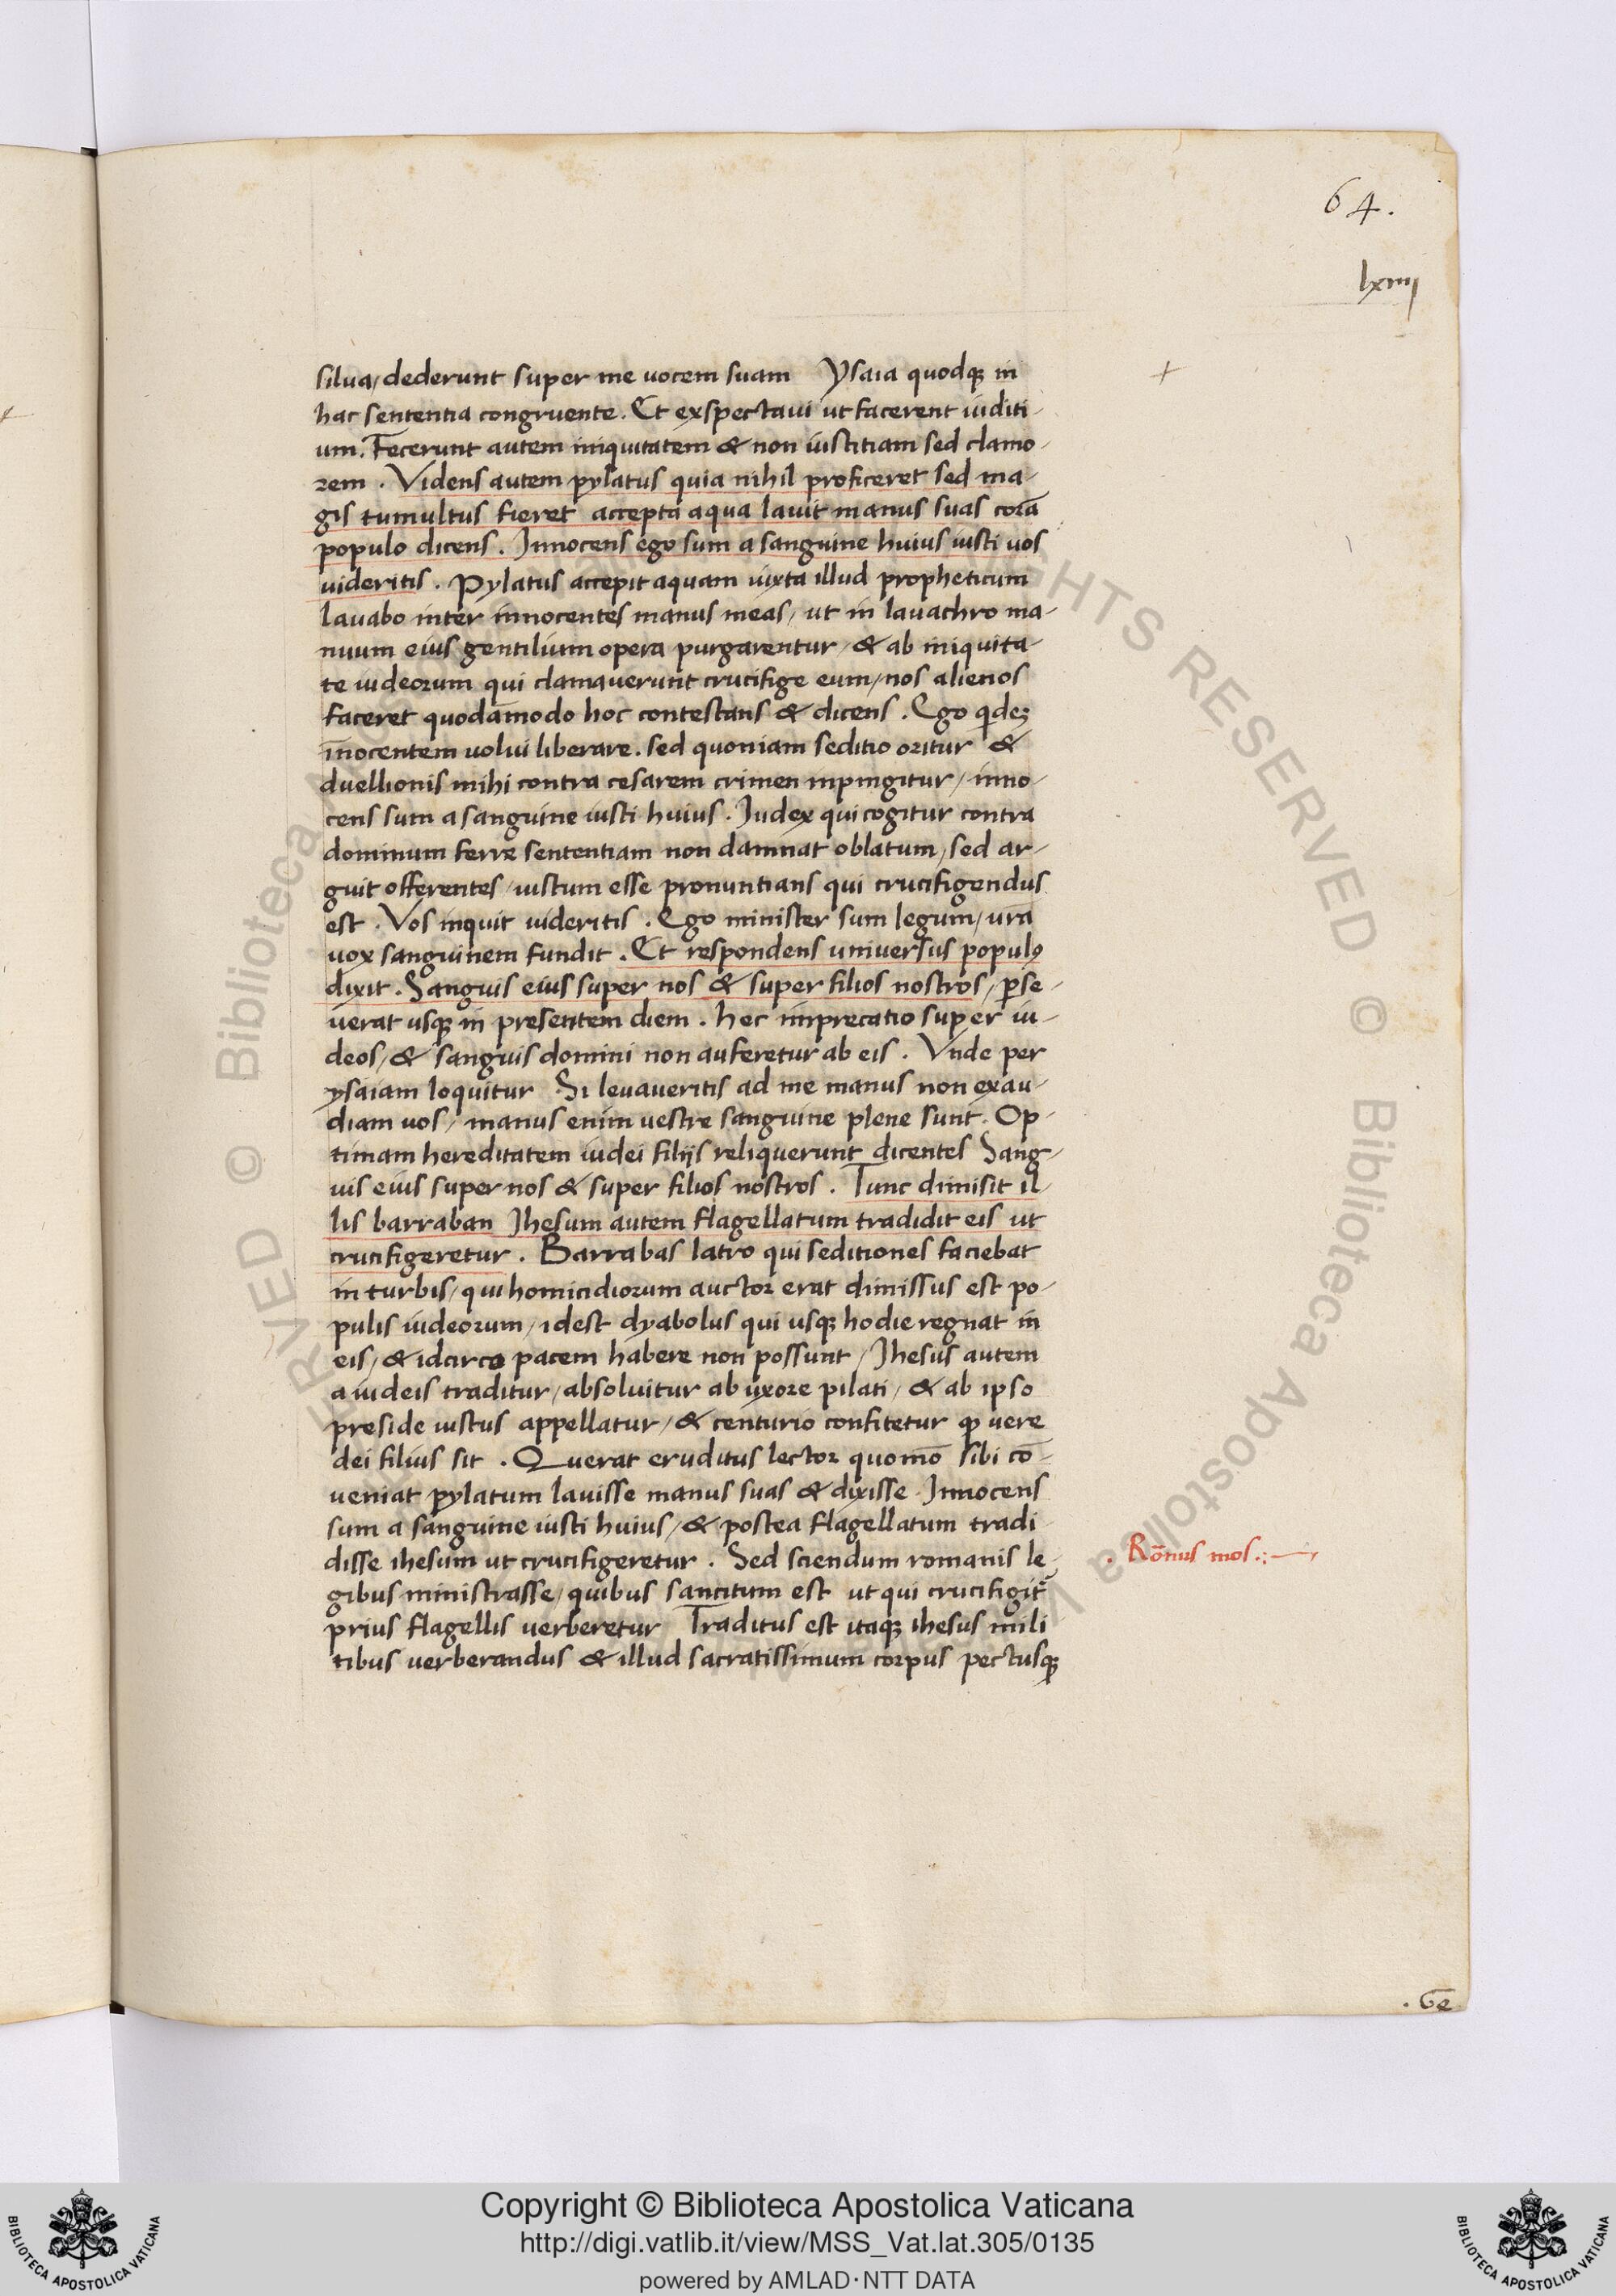 64.
lxiiij
silua, dederunt super me uocem suam Ysaia quodqꝫ in
hac sententia congruente. Et exspectaui ut facerent iuditi-
um. Fecerunt autem iniquitatem & non iustitiam sed clamo-
rem. Videns autem pylatus quia nihil proficeret sed ma-
gis tumultus fieret accepta aqua lauit manus suas corā
populo dicens. Innocens ego sum a sanguine huius iusti uos
uideritis. Pylatus accepit aquam iuxta illud propheticum
lauabo inter innocentes manus meas, ut in lauachro ma-
nuum eius gentilium opera purgarentur, & ab iniquita-
te iudeorum qui clamauerunt crucifige eum, nos alienos
faceret quodāmodo hoc contestans & dicens. Ego qideꝫ
īnocentem uolui liberare. sed quoniam seditio oritur &
duellionis mihi contra cesarem crimen inpingitur, inno-
cens sum a sanguine iusti huius. Iudex qui cogitur contra
dominum ferre sententiam non damnat oblatum, sed ar-
guit offerentes, iustum esse pronuntians qui crucifigendus
est. Vos inquit uideritis. Ego minister sum legum, urā
uox sanguinem fundit. Et respondens uniuersus populꝰ
dixit. Sanguis eius super nos & super filios nostros, ꝑse-
uerat usqꝫ in presentem diem. hec inprecatio super iu-
deos, & sanguis domini non auferetur ab eis. Vnde per
ysaiam loquitur Si leuaueritis ad me manus non exau-
diam uos, manus enim uestre sanguine plene sunt. Op-
timam hereditatem iudei filijs reliquerunt dicentes Sang-
uis eius super nos & super filios nostros. Tunc dimisit il-
lis barraban Ihesum autem flagellatum tradidit eis ut
crucifigeretur. Barrabas latro qui seditiones faciebat
in turbis, qui homicidiorum auctor erat dimissus est po-
pulis iudeorum, idest dyabolus qui usqꝫ hodie regnat in
eis, & idcirco pacem habere non possunt, Ihesus autem
a iudeis traditur, absoluitur ab uxore pilati, & ab ipso
preside iustus appellatur, & centurio confitetur ꝙ uere
dei filius sit. Querat eruditus lector quomō sibi cō-
ueniat pylatum lauisse manus suas & dixisse. Innocens
sum a sanguine iusti huius, & postea flagellatum tradi-
disse ihesum ut crucifigeretur. Sed sciendum romanis le-
gibus ministrasse, quibus sancitum est ut qui crucifigit᷑
prius flagellis uerberetur Traditus est itaqꝫ ihesus mili-
tibus uerberandus & illud sacratissimum corpus pectusqꝫ
. Rōnus mos.
Copyright © Biblioteca Apostolica Vaticana
http://digi.vatlib.it/view/MSS_Vat.lat.305/0135
powered by AMLAD·NTT DATA
BIBLIOTECA APOSTOLICA VATICANA
BIBLIOTECA APOSTOLICA VATICANA